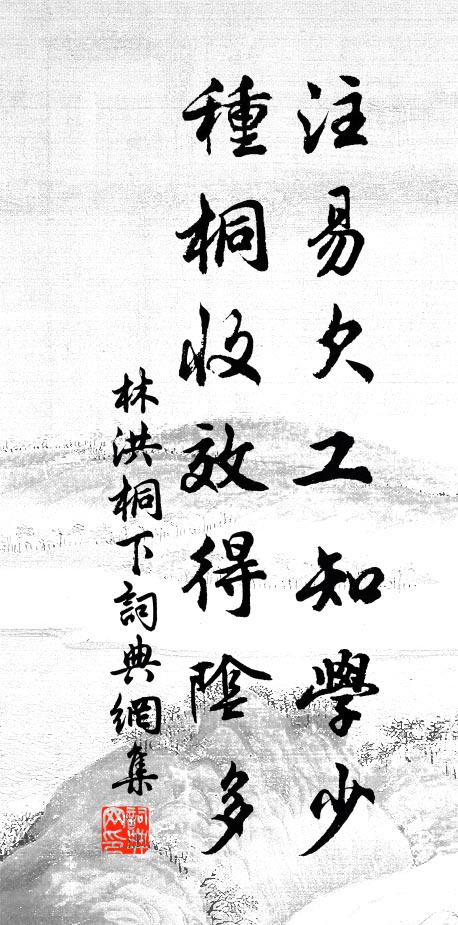 注易欠工知學少
種桐收效得陰多
林洪桐下詞典網集